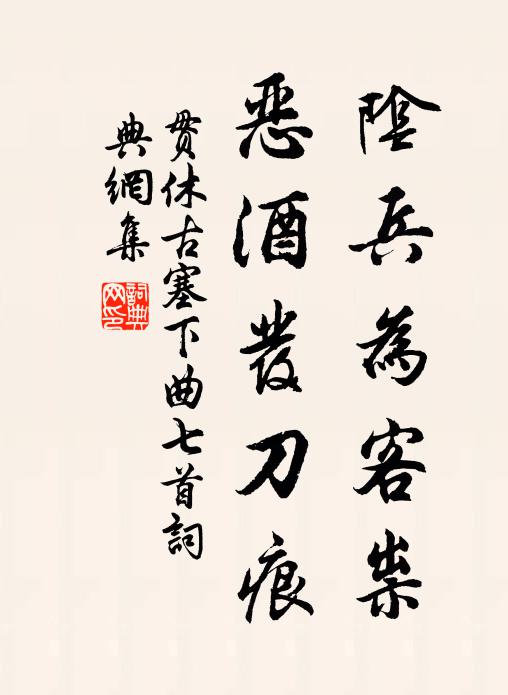 陰兵為客祟
惡酒發刀痕
貫休古塞下曲七首詞
典網集
詞典網印